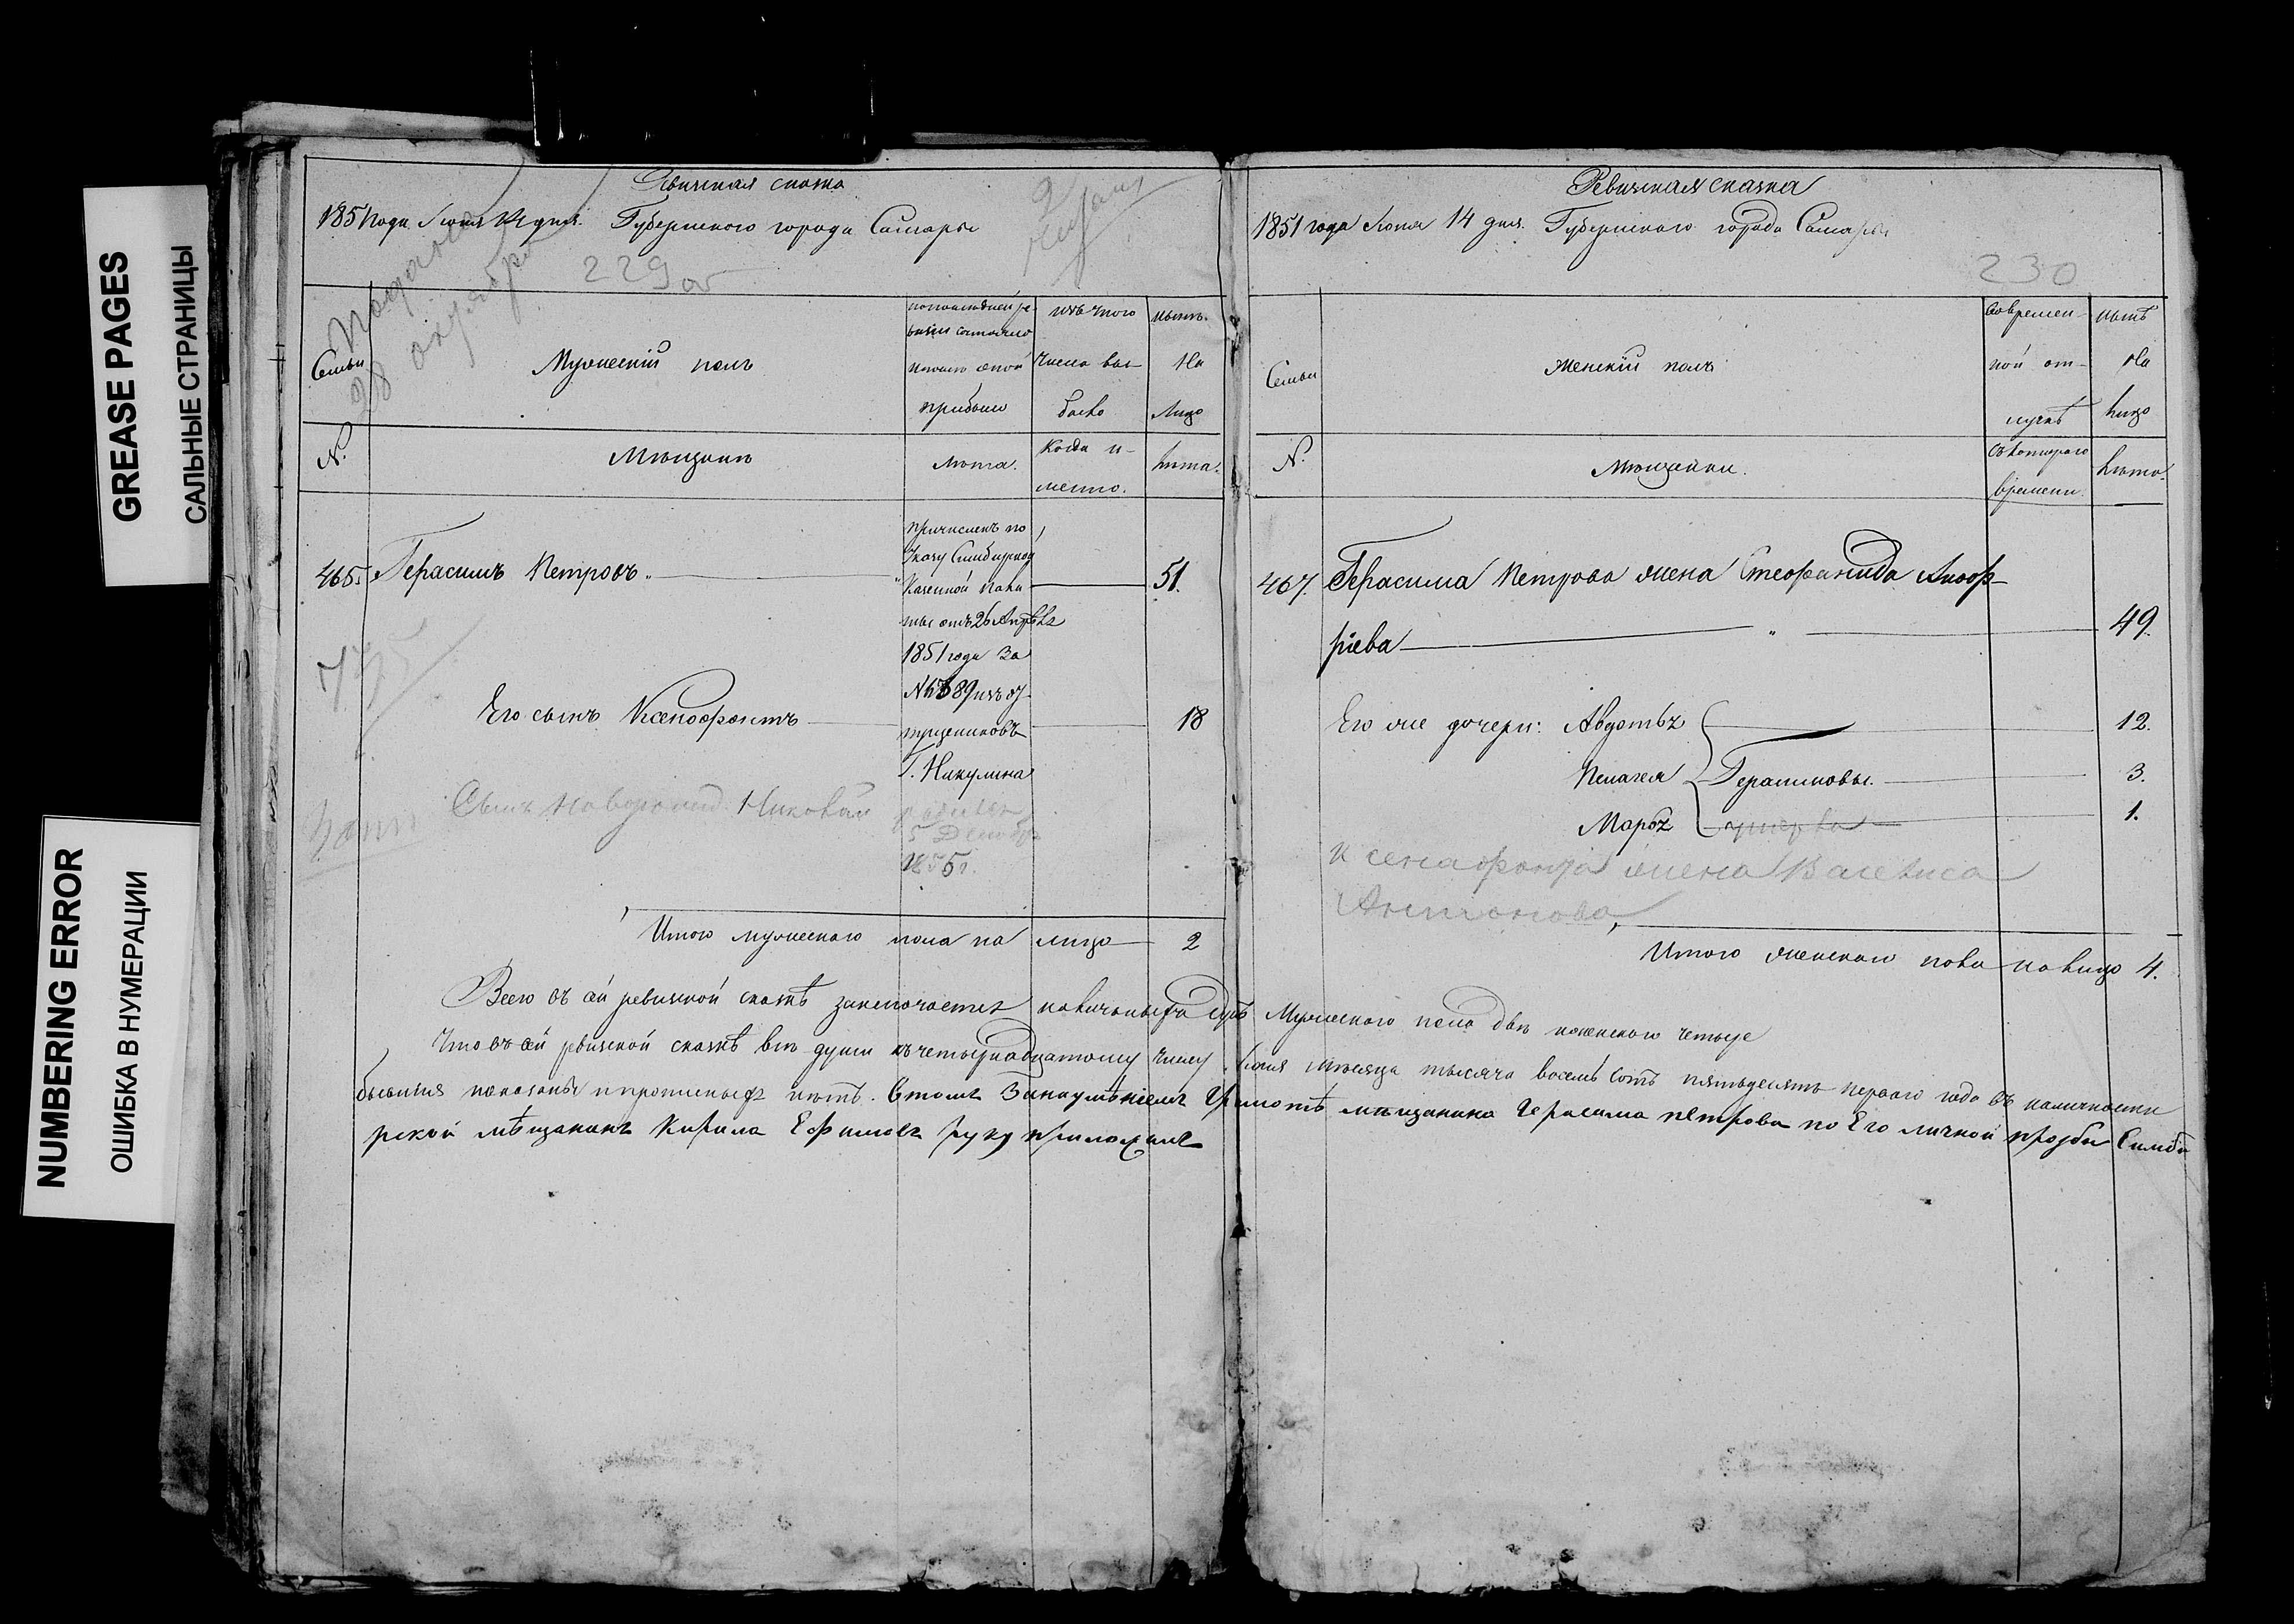 GREASE PAGES
САЛЬНЫЕ СТРАНИЦЫ
NUMBERING ERROR
ОШИБКА В НУМЕРАЦИИ
Ревижская сказка
1851 года Июня 14 дня. Губернского города Самары
Подана
28 октября
229 об
Семьи
Мужеский полъ
по последней ревизіи состояло
и после оной
прибыло
изъ того
числа вы-
было
нынѣ
На
Лицо
N.
Мещане
Лета.
Когда и-
менно.
Лета.
465. Герасимъ Петровъ.
51.
причисленъ по
Указу Симбирской
Казенной Пала
ты отъ 26 Апрѣля
1851 года За
N 6389 изъ от
пущениковъ
Г. Никулина
Его сынъ Ксенофонтъ
18
775
Сынъ новорожд. Николай
родился
5 Декабр
1855 г.
Итого мужескаго пола на лицо 2
Ревижская сказка
1851 года Июня 14 дня. Губернского города Самары
230
Семьи
Женскій полъ
Во времен-
ной от-
лучкѣ
нынѣ
На
лицо
N.
Мещанки.
Съ котораго
времени.
Лета.
467. Герасима Петрова жена Стефанида Аноф-
ріева
49.
Его же дочери: Авдотья
12.
Пелагея Герасимовы.
3.
Марья умерла
1.
Ксенофонта жена Василиса
Антонова
Итого женскаго пола на лицо 4.
Всего въ сей ревижской сказкѣ заключается наличныхъ душъ Мужескаго пола две женского четыре
Что въ сей ревижской сказкѣ все души къ четырнадцатому числу Июня месяца тысяча восемь сотъ пятьдесятъ перваго года въ наличности
бывшия показаны и прописныхъ нѣтъ. Втомъ Занеумѣниемъ Грамотѣ мещанина Герасима петрова по Его личной прозбы Симби
рской мѣщанинъ Кирила Ефимовъ руку приложилъ